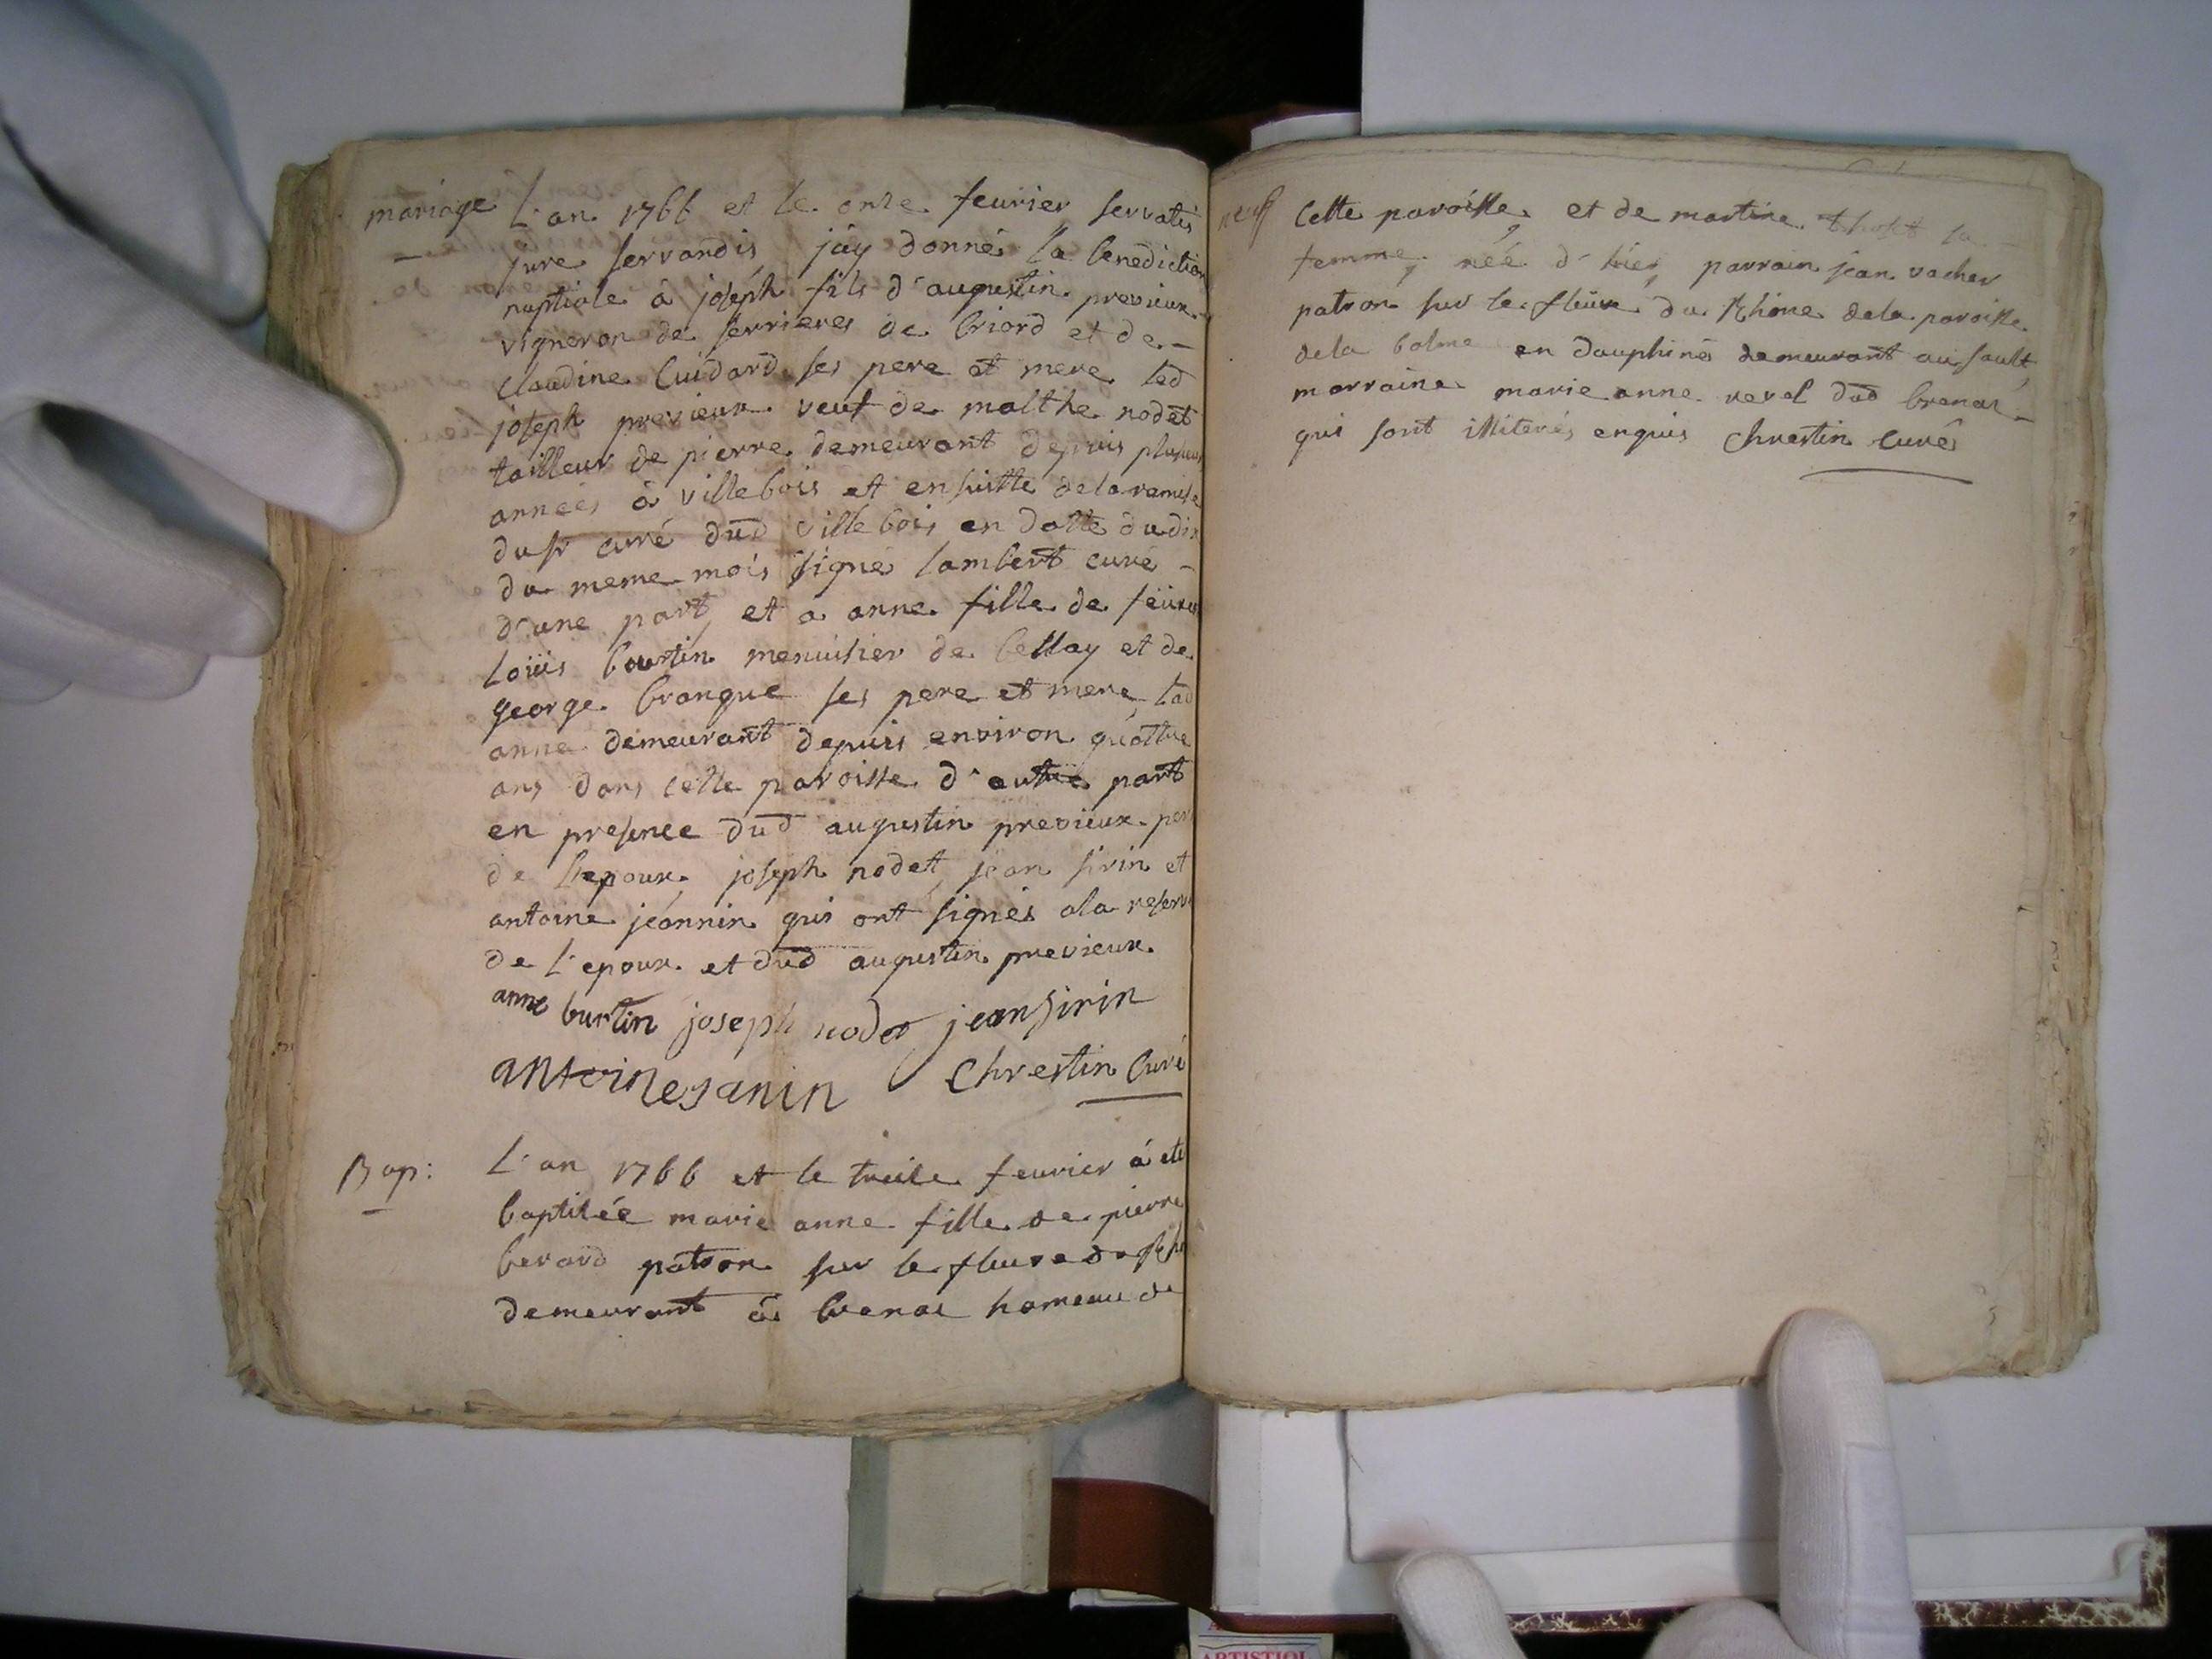 mariage L'an 1766 et le onze feuvrier servatis
jure servandis jáy donné la benediction
nuptiale à joséph fils d'augustin previeux
vigneron de serrieres de briord et de
claudine Cuidard ses pere et mere led
joseph previeux veuf de malthe nodet
tailleur de pierre demeurant depuis plusieurs
années à villebois et ensuitte de la remise
du sr curé dud villebois en datte du dix
du meme mois signé lambert curé
d'une part, et a anne fille de
loüis bourtin menuisier de bellay et de
george brangue ses pere et mere, lad
anne demeurant depuis environ quattre
ans dans cette paroisse d'autre part
en presence dud augustin previeux pere
de l'epoux, joseph nodet, jean sirin et
antoine jéannin qui ont signés a la reserve
de l'epoux et dud augustin previeux
anne burtin joseph nodet jean sirin
antoine janin Chrestin Curé
Bap: L'an 1766 et le treize feuvrier á eté
baptisée marie anne fille de pierre
berard patron sur le fleuve du Rhône
demeurant à brenaz hameau de
cette paroisse, et de martine sa
femme, née d'hier, parrain jean vacher
patron sur le fleuve du Rhône de la paroisse
de la balme en dauphiné demeurant au sault,
marraine marie anne revel dud brenaz
qui sont illiterés enquis Chrestin Curé